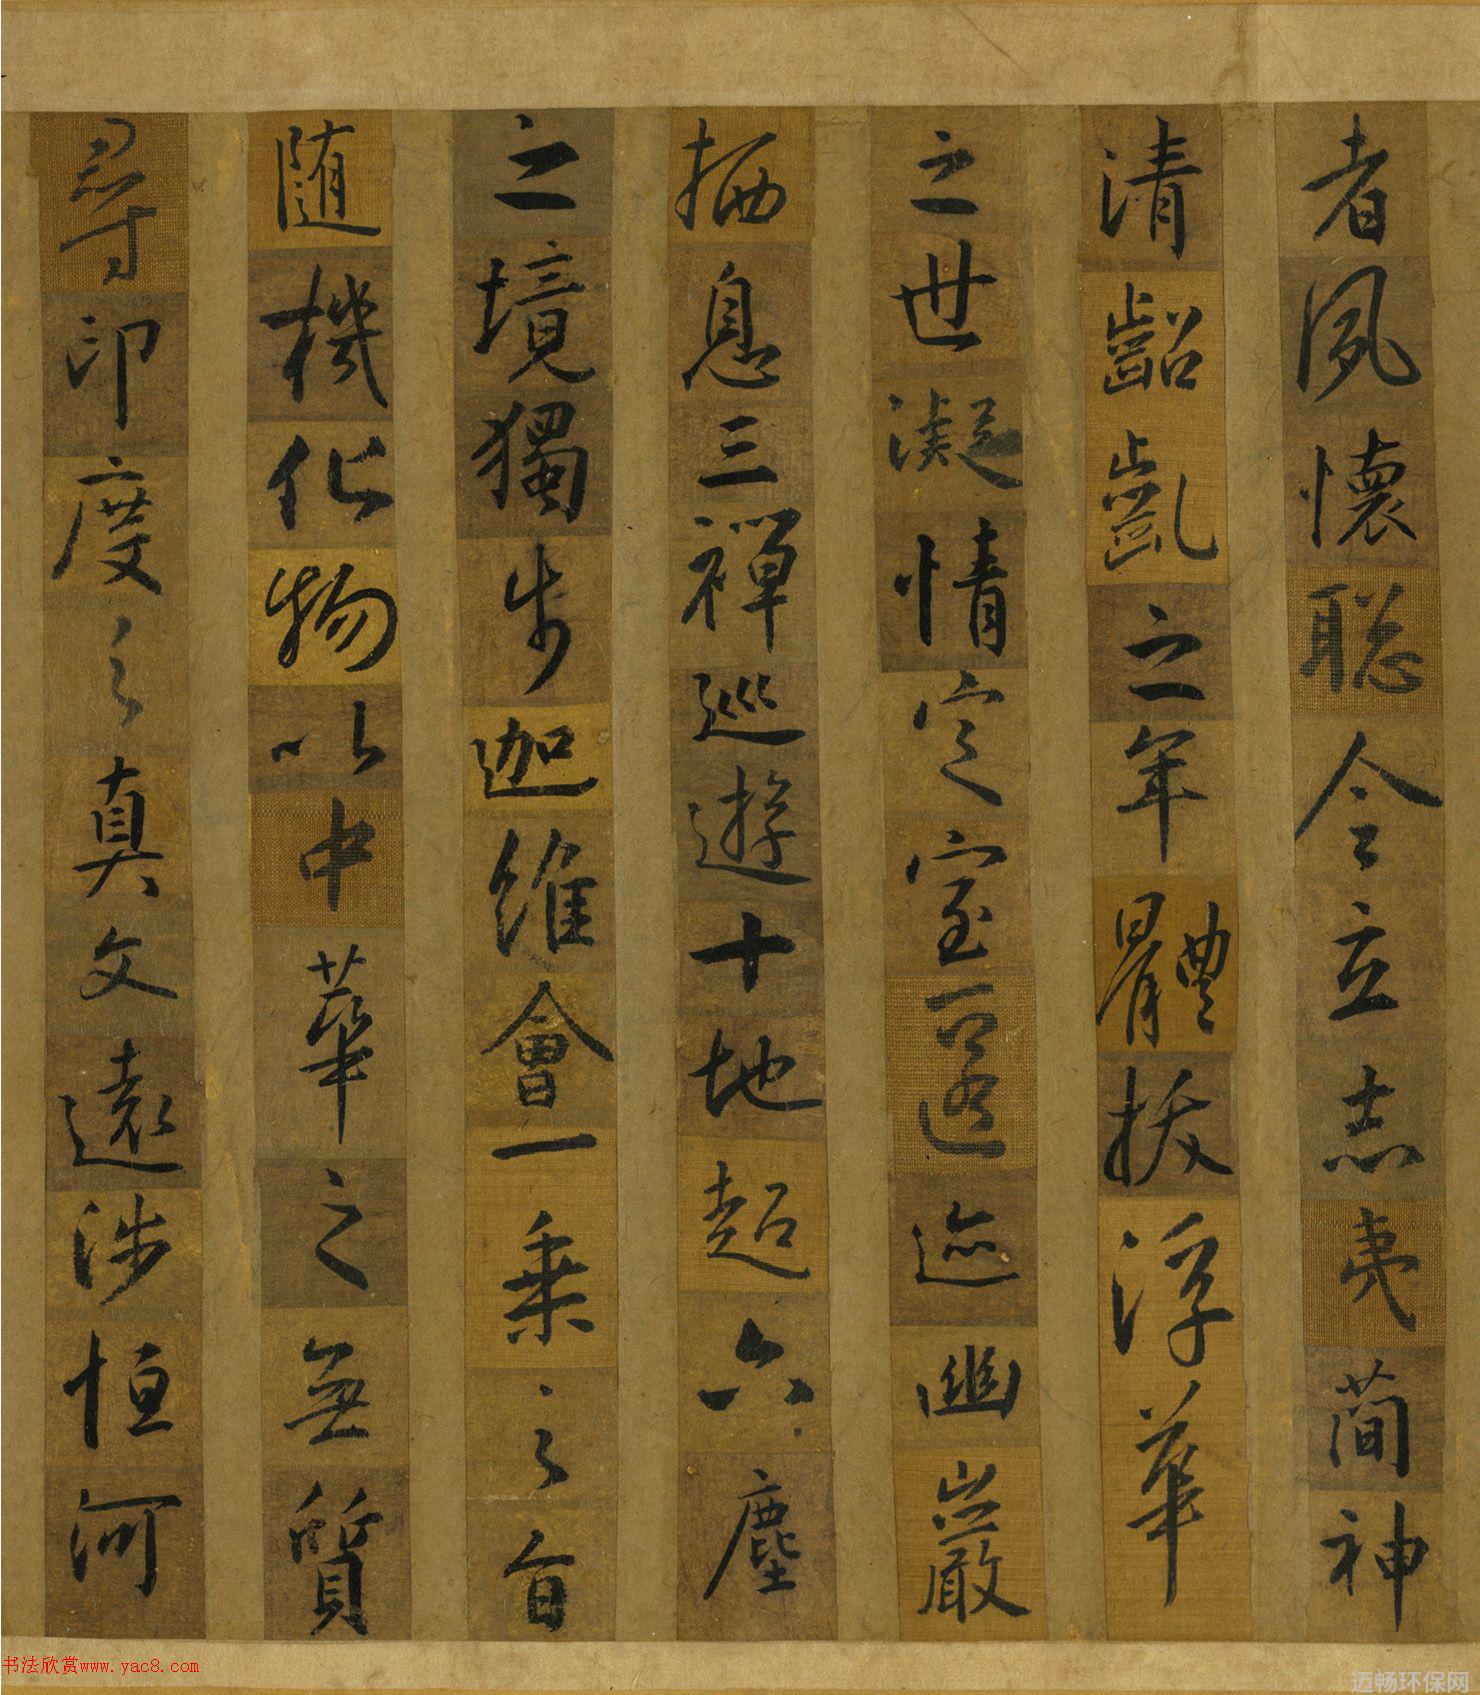 者夙懷聡令立志夷蕳神
清齠齔之年體拔浮華
之世凝情定室匿迹幽巖
栖息三禪巡遊十地超六塵
之境獨步迦維會一乘之旨
随機化物以中華之無質
尋印度之真文遠涉恒河
书法欣赏www.yac8.com
迈畅环保网